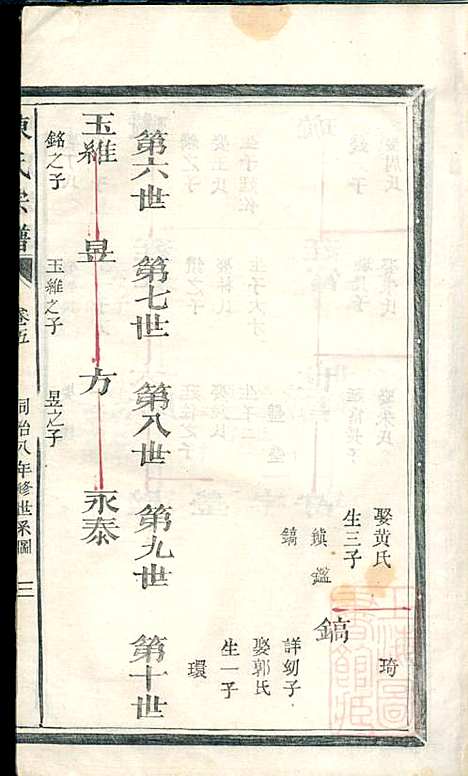 琦
娶黃氏
生三子
鎮 鑑
鎬
鎬
詳幼子
娶郭氏
生一子
環
第六世 第七世 第八世 第九世 第十世
玉維 昱 方 永泰
銘之子 玉維之子 昱之子
陳氏宗譜 卷五 同治八年修世系圖 三